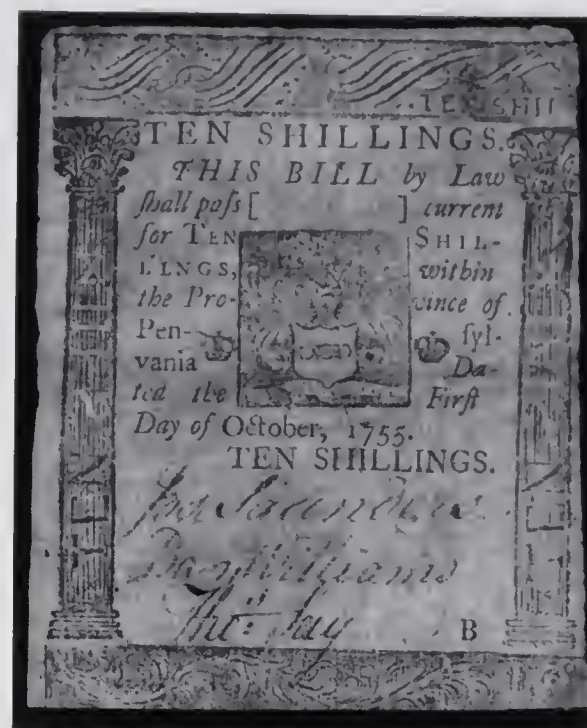 TEN SHIL
TEN SHILLINGS.
THIS BILL by Law
ſhall paſs [ ] current
for TEN SHIL-
LINGS, within
the Pro- vince of
Pen- ſyl-
vania Da-
ted the Firſt
Day of October, 1755.
TEN SHILLINGS.
Williams
B